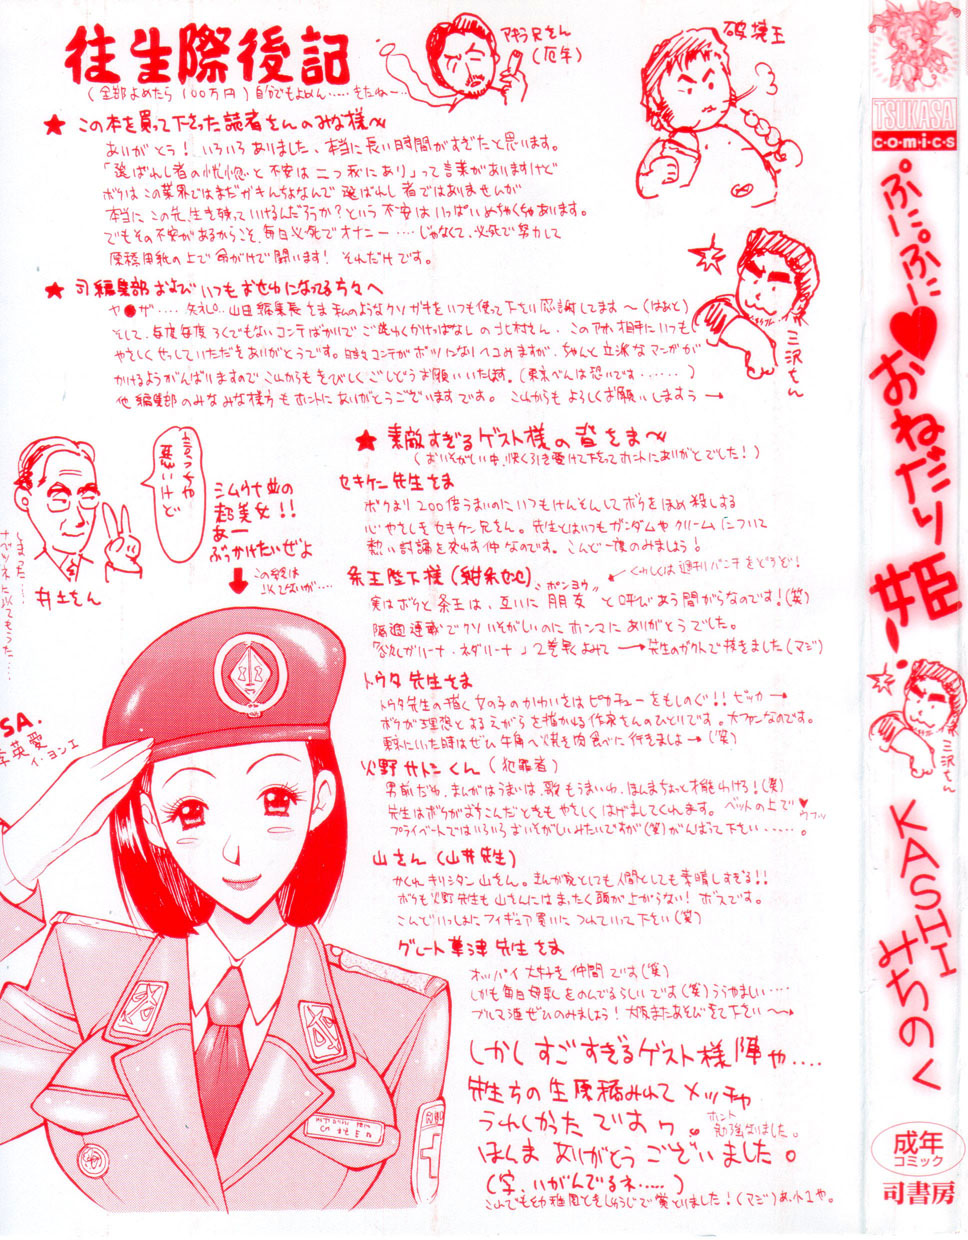 往生際後記
(全部よめたら100万円)自分でもよめん……もたね〜…
アキラ兄さん
(厄年)
破壊王
★ この本を買って下さった読者さんのみな様〜
ありがとう! いろいろありました、本当に長い時間がすぎたと思います。
「選ばれし者の恍惚と不安は二つ我にあり」って言葉がありますけど
ボクはこの業界ではまだガキんちょなんで選ばれし者ではありませんが
本当にこの先、生き残っていけるんだろうか?という不安はいっぱいめちゃくちゃあります。
でもその不安があるからこそ、毎日必死でオナニー……じゃなくて、必死で努力して
原稿用紙の上で命がけで闘います! それだけです。
★ 司編集部およびいつもお世わになってる方々へ
ヤ●ザ……失礼。山田編集長さま
やさしくせっしていただきありがとうです。時々コンテがボツになりヘコみますが、ちゃんと立派なマンガが
かけるようがんばりますのでこんからもきびしくごしどうお願いいたします。(東京べんは恐いです……)
他編集部のみなみな様方もホントにありがとうございますです。こんからもよろしくお願いしますぅ→
三沢さん
★ 素敵すぎるゲスト様の皆さま〜
(おいそがしい中、快く引き受けて下さってホントにありがとでした!)
セキケン先生さま
ボクより200倍うまいのにいつもけんそんしてボクをほめ殺しする
心やさしきセキケン兄さん。先生とはいつもガンダムやクリームについて
熱い討論を交わす仲なのです。こんど一度のみましょう!
言っちゃ
悪いけど
井上さん
シムラけ並の
超美女!!
あー
ぶっかけたいぜよ
この絵は
JKでないが…
SA.
李英愛
イ・ヨンエ
条王陛下様(紺条夜也)
くわしくは週刊パンチをどうぞ!
ポンヨウ
実はボクと条王は、互いに朋友と呼びあう間がらなのです!(笑)
隔週連載でクソいそがしいのにホンマにありがとうでした。
「欲しがリーナ・ネダリーナ」2巻早くよみて→先生のガクトで抜きました(マジ)
トウタ先生さま
トウタ先生の描く女の子のかわいさはピカチューをもしのぐ!! ピッカ→
ボクが理想とするえがらを描かれる作家さんのひとりです。大ファンなのです。
東京にいた時はぜひ牛角へ焼き肉食べに行きましょ→(笑)
火野サトシくん(犯罪者)
男前だわ、まんがはうまいは、歌もうまいわ、ほんまちょっと才能わけろ!(笑)
先生はボクがおちこんだときもやさしくはげましてくれます。ベットの上で♥ウフッ
プライベートではいろいろおいそがしいみたいですが(笑)がんばって下さい……。
山さん(山井先生)
かくれキリシタン山さん。まんが家としても人間としても素晴しすぎる!!
ボクも火野先生も山さんにはまったく頭が上がらない! ボスです。
こんどいっしょにフィギュア買いにつれていって下さい(笑)
グレート草津先生さま
オッパイ大好き仲間です(笑)
しかも毎日母乳をのんでるらしいです(笑)うらやましい……
ブルマ酒ぜひのみましょう! 大阪またあそびきて下さい〜→
しかしすごすぎるゲスト様陣や…
先生方の生原稿みれてメッチャ
うれしかったですゥ。
ホント
勉強なりました。
ほんまありがとうございました。
(字、いがんでるネ……)
こんでも幼稚園ときしゅうじで賞とりました!(マジ)あ、小1や。
TSUKASA
comics
ぷにぷに♥おねだり姫!
三沢さん
KASHIみちのく
成年
コミック
司書房